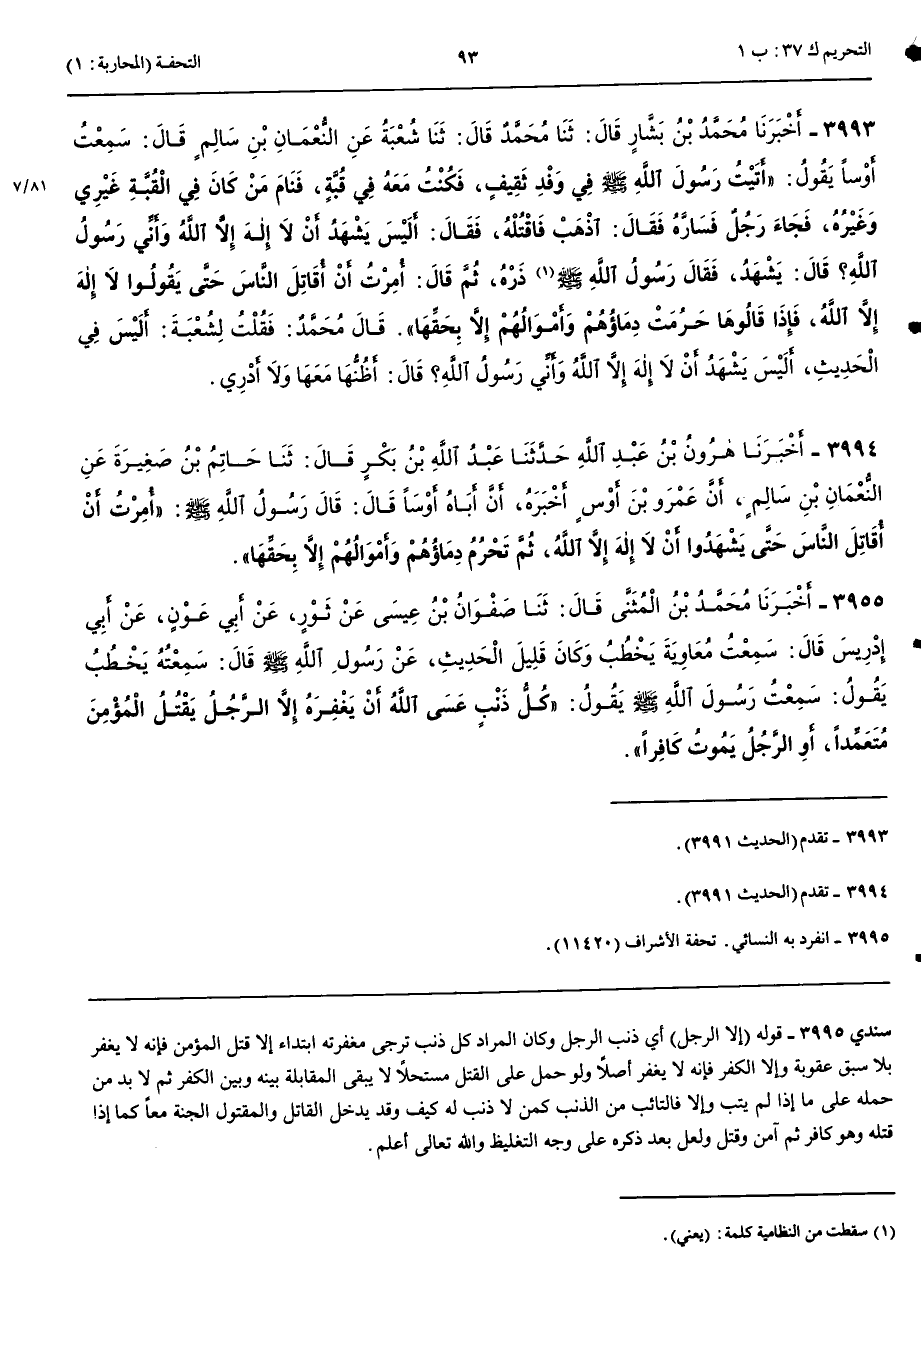 التحريم ك ٣٧: ب ١
٩٣
التحفـة (المحاربة: ١)
٣٩٩٣ ـ أَخْبَرَنَا مُحَمَّدُ بْنُ بَشَّارٍ قَالَ: ثَنَا مُحَمَّدٌ قَالَ: ثَنَا شُعْبَةُ عَنِ النُّعْمَـانِ بْنِ سَالِمٍ قَـالَ: سَمِعْتُ
أَوْساً يَقُولُ: «أَتَيْتُ رَسُولَ ٱللَّهِ ﷺ فِي وَفْدِ ثَقِيفٍ، فَكُنْتُ مَعَهُ فِي قُبَّةٍ، فَنَامَ مَنْ كَانَ فِي الْقُبَّةِ غَيْرِي
٧/٨١
وَغَيْرُهُ، فَجَاءَ رَجُلٌ فَسَارَّهُ فَقَالَ: ٱذْهَبْ فَاقْتُلْهُ، فَقَالَ: أَلَيْسَ يَشْهَدُ أَنْ لَا إِلـٰهَ إِلَّا ٱللَّهُ وَأَنِّي رَسُولُ
ٱللَّهِ؟ قَالَ: يَشْهَدُ، فَقَالَ رَسُولُ ٱللَّهِ ﷺ(١) ذَرْهُ، ثُمَّ قَالَ: أُمِرْتُ أَنْ أُقَاتِلَ النَّاسَ حَتَّى يَقُولُـوا لَا إِلٰهَ
إِلَّا ٱللَّهُ، فَإِذَا قَالُوهَا حَرُمَتْ دِمَاؤُهُمْ وَأَمْـوَالُهُمْ إِلَّا بِحَقِّهَا». قَـالَ مُحَمَّدٌ: فَقُلْتُ لِشُعْبَـةَ: أَلَيْسَ فِي
الْحَدِيثِ، أَلَيْسَ يَشْهَدُ أَنْ لَا إِلٰهَ إِلَّا ٱللَّهُ وَأَنِّي رَسُولُ ٱللَّهِ؟ قَالَ: أَظُنُّهَا مَعَهَا وَلَا أَدْرِي.
٣٩٩٤ ـ أَخْبَرَنَـا هٰرُونُ بْنُ عَبْـدِ ٱللَّهِ حَدَّثَنَا عَبْـدُ ٱللَّهِ بْنُ بَكْـرٍ قَـالَ: ثَنَـا حَـاتِمُ بْنُ صَغِيرَةَ عَنِ
النُّعْمَانِ بْنِ سَالِمٍ، أَنَّ عَمْرَو بْنَ أَوْسٍ أَخْبَرَهُ، أَنَّ أَبَاهُ أَوْسَاً قَـالَ: قَالَ رَسُـولُ ٱللَّهِ ﷺ: «أُمِرْتُ أَنْ
أُقَاتِلَ النَّاسَ حَتَّى يَشْهَدُوا أَنْ لَا إِلٰهَ إِلَّا ٱللَّهُ، ثُمَّ تَحْرُمُ دِمَاؤُهُمْ وَأَمْوَالُهُمْ إِلَّا بِحَقِّهَا».
٣٩٥٥ ـ أَخْبَـرَنَا مُحَمَّـدُ بْنُ الْمُثَنَّى قَـالَ: ثَنَـا صَفْوَانُ بْنُ عِيسَى عَنْ ثَـوْرٍ، عَنْ أَبِي عَـوْنٍ، عَنْ أَبِي
إِدْرِيسَ قَالَ: سَمِعْتُ مُعَاوِيَةَ يَخْطُبُ وَكَانَ قَلِيلَ الْحَدِيثِ، عَنْ رَسُولِ ٱللَّهِ ﷺ قَالَ: سَمِعْتُهُ يَخْـطُبُ
يَقُـولُ: سَمِعْتُ رَسُـولَ ٱللَّهِ ﷺ يَقُولُ: «كُـلُّ ذَنْبٍ عَسَى ٱللَّهُ أَنْ يَغْفِـرَهُ إِلَّا الـرَّجُـلُ يَقْتُـلُ الْمُؤْمِنَ
مُتَعَمِّداً، أَوِ الرَّجُلُ يَمُوتُ كَافِراً».
٣٩٩٣ ـ تقدم (الحديث ٣٩٩١).
٣٩٩٤ ـ تقدم (الحديث ٣٩٩١).
٣٩٩٥ ـ انفرد به النسائي. تحفة الأشراف (١١٤٢٠).
سندي ٣٩٩٥ ـ قوله (إلا الرجل) أي ذنب الرجل وكان المراد كل ذنب ترجى مغفرته ابتداء إلا قتل المؤمن فإنه لا يغفر
بلا سبق عقوبة وإلا الكفر فإنه لا يغفر أصلاً ولو حمل على القتل مستحلاً لا يبقى المقابلة بينه وبين الكفر ثم لا بد من
حمله على ما إذا لم يتب وإلا فالتائب من الذنب كمن لا ذنب له كيف وقد يدخل القاتل والمقتول الجنة معاً كما إذا
قتله وهو كافر ثم آمن وقتل ولعل بعد ذكره على وجه التغليظ والله تعالى أعلم.
(١) سقطت من النظامية كلمة: (يعني).